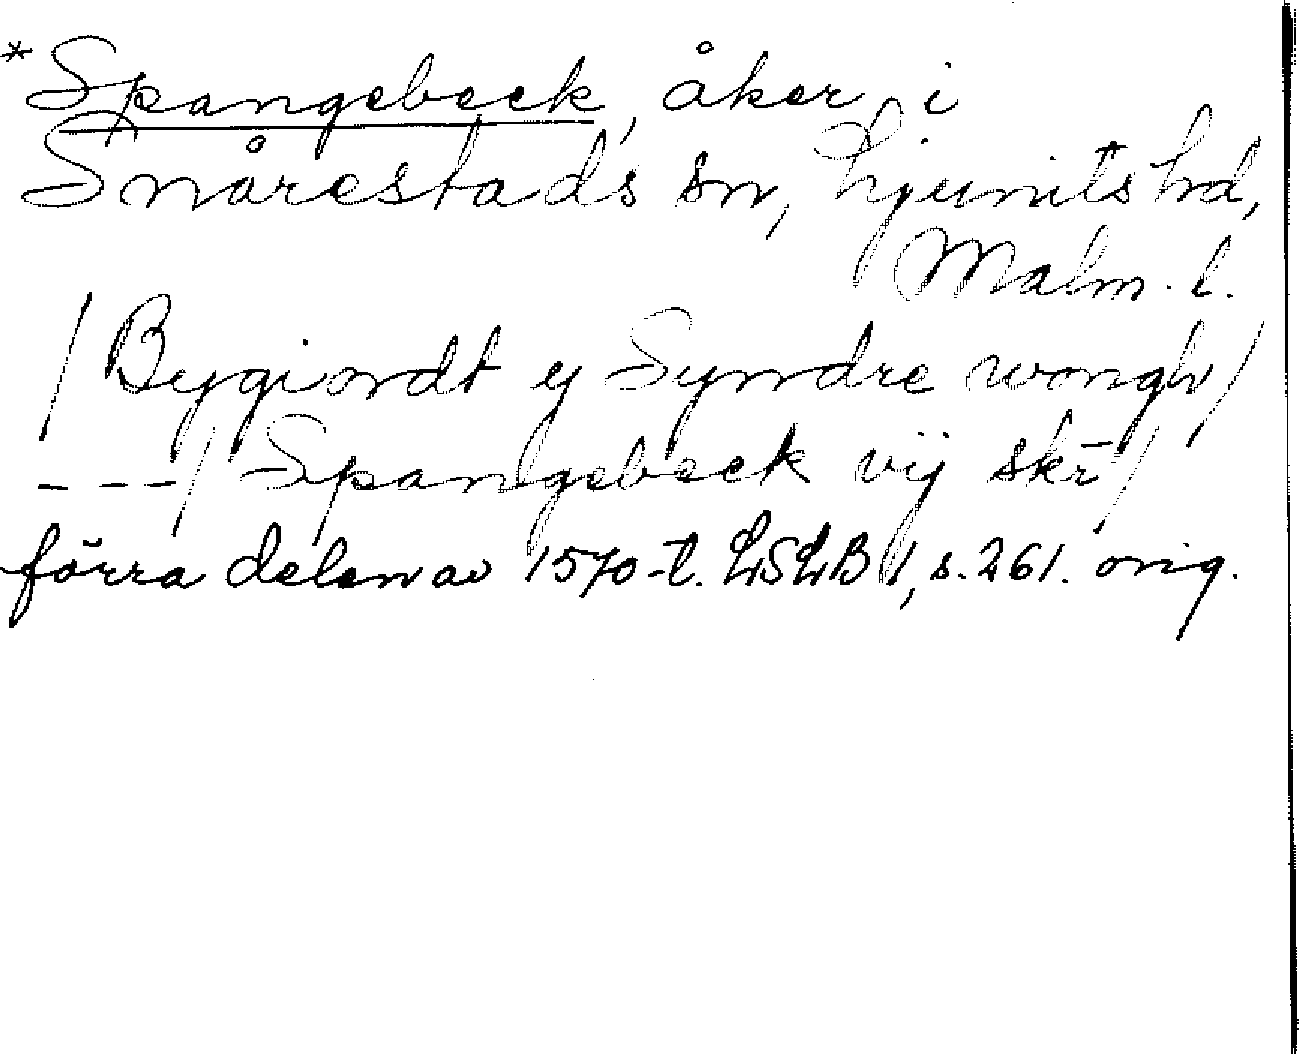 *Spangebeck, åker i
Snårestads sn, Ljunits hd,
Malm. l.
/Bygiordt y Syndre wongh/
---/Spangebeck vij skr̄/
förra delen av 1570-t. LSLB 1, s. 261. orig.